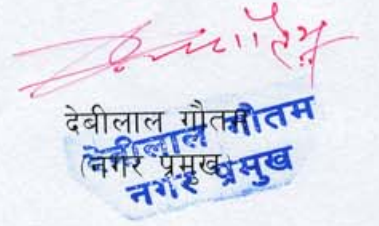 देबीलाल गौतम
(नगर प्रमुख)
देबीलाल गौतम
नगर प्रमुख